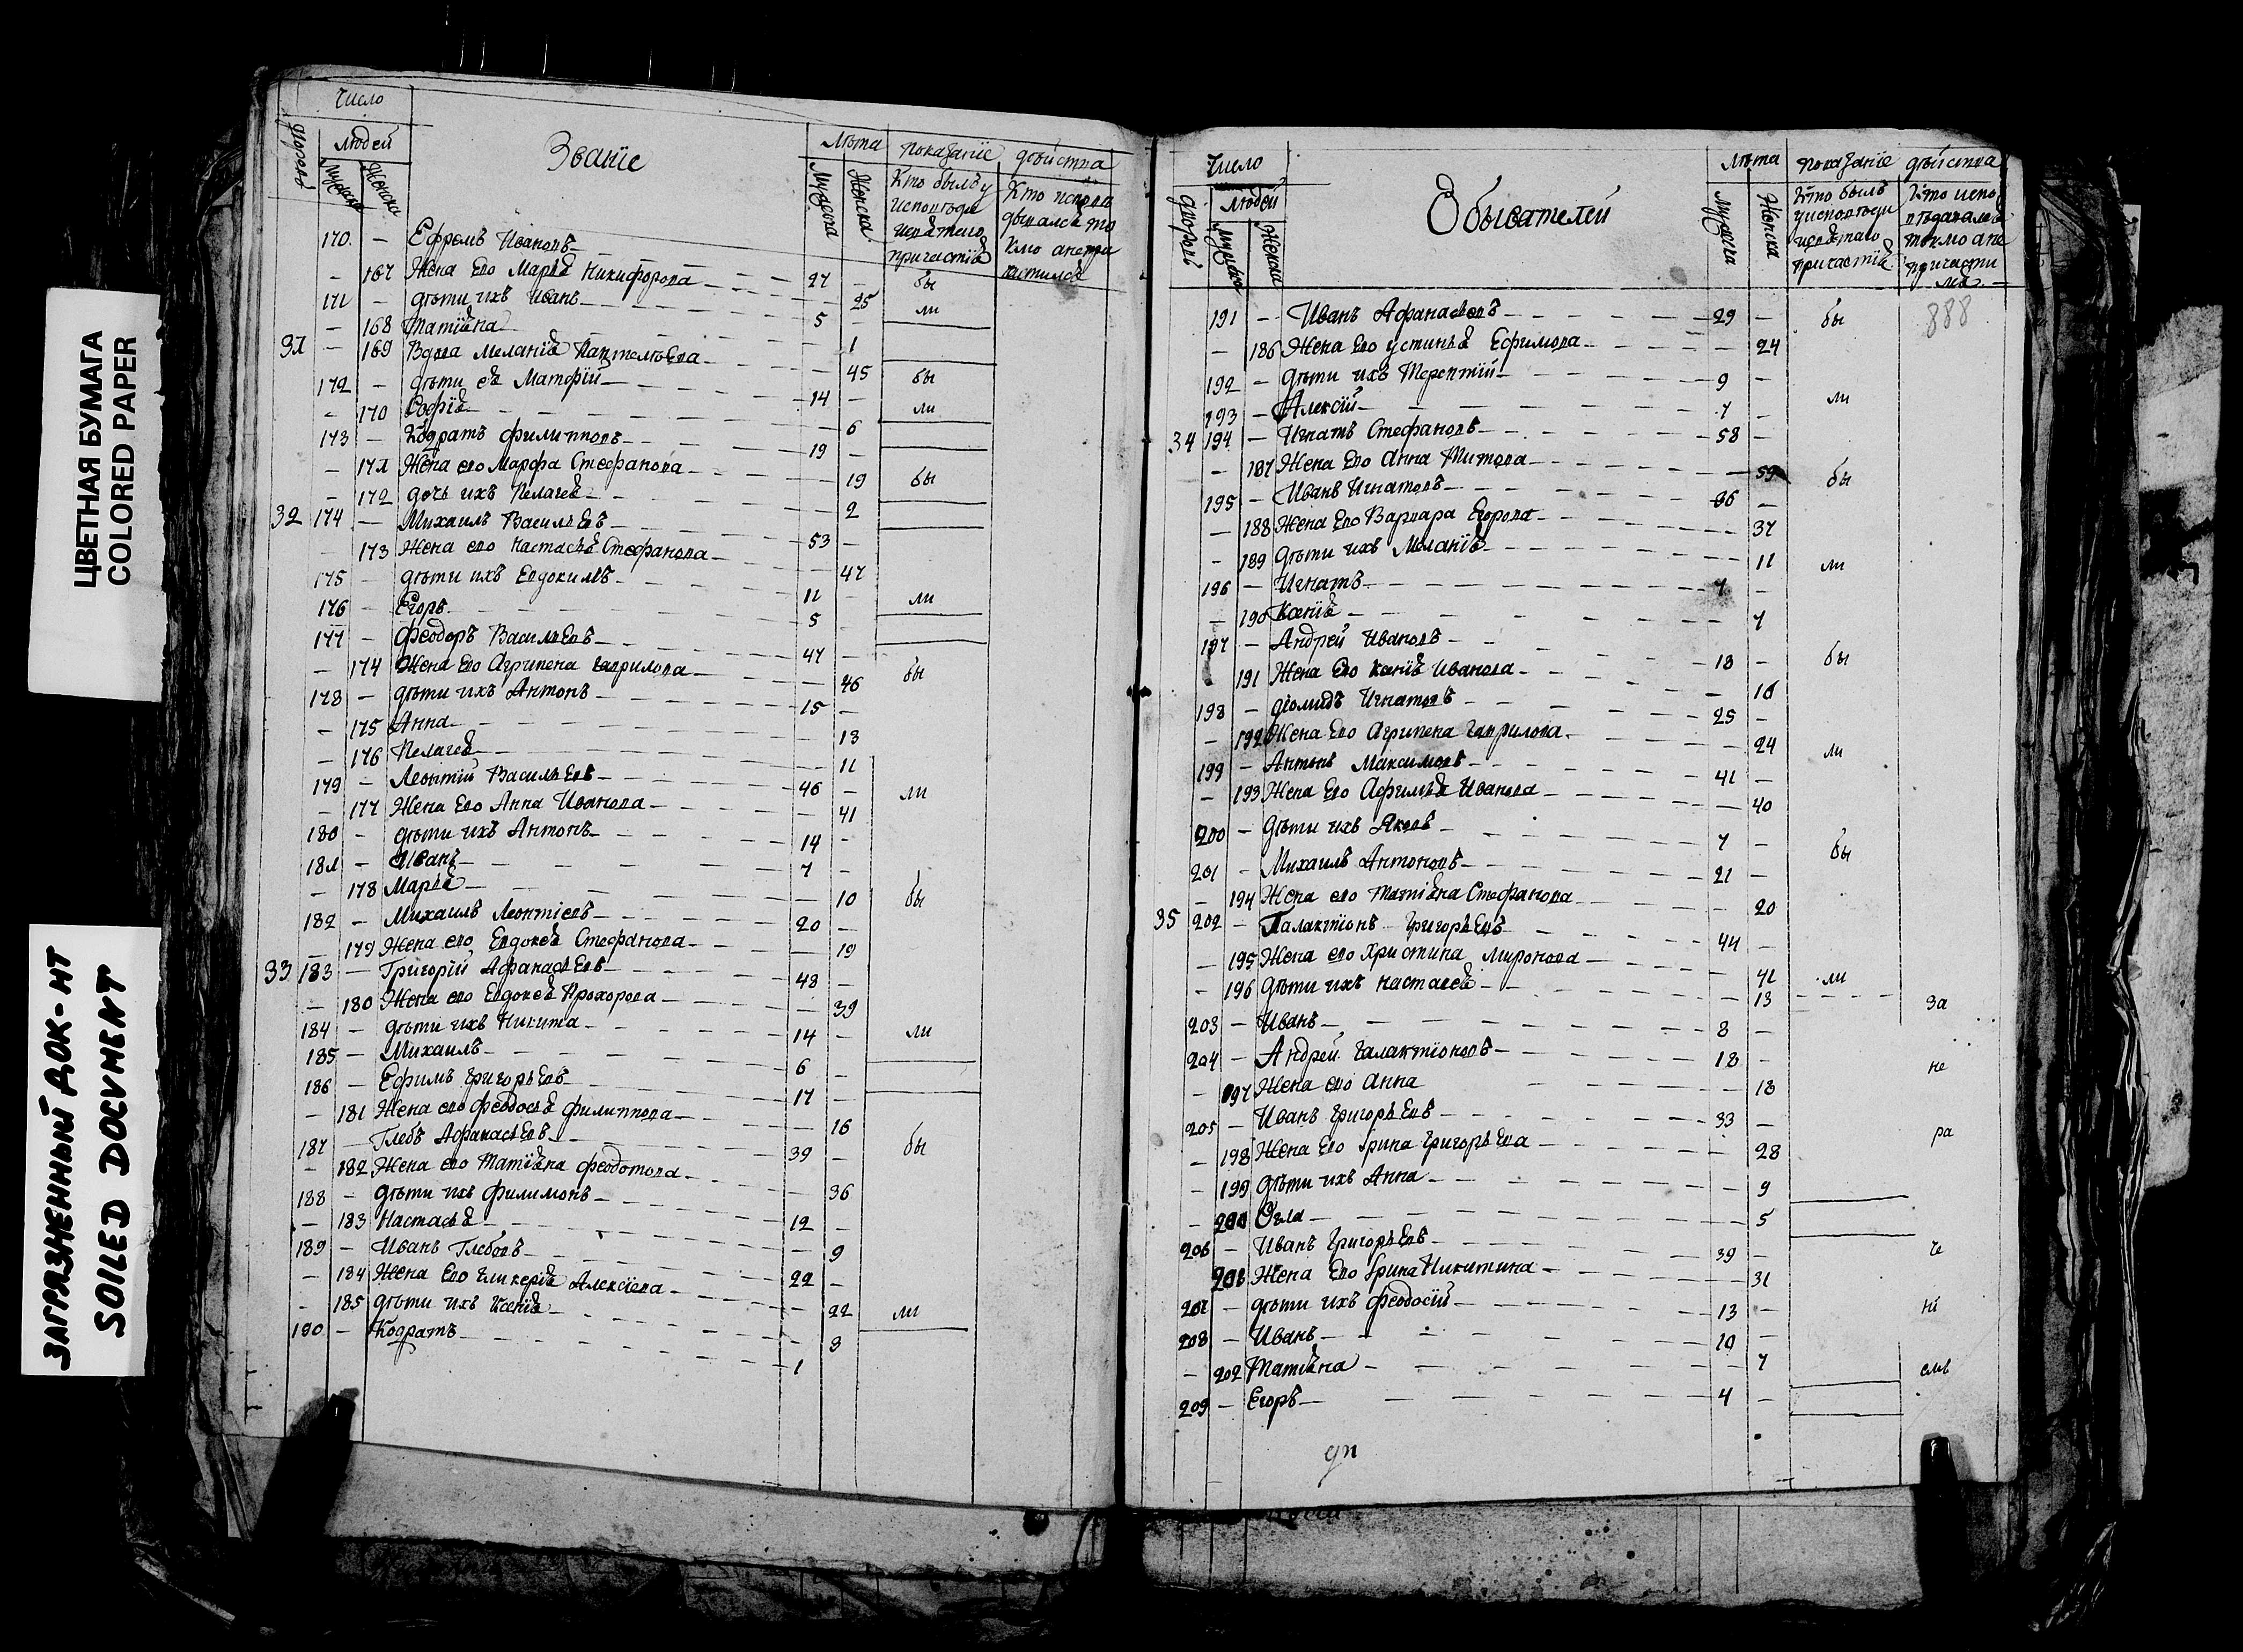 ЦВЕТНАЯ БУМАГА
COLORED PAPER
ЗАГРЯЗНЕННЫЙ ДОК-НТ
SOILED DOCUMENT
Число
людей
Званїе
Лѣта показанїе дѣйства
Мужеска Женска
170. — Ефремъ Ивановъ 27 — бы
— 167 Жена Его Марья Никифорова — 25 ли
171 — дѣти ихъ Иванъ 5 —
— 168 Татїяна — 1
31 — 169 Вдова Меланїя Пантелѣева — 45 бы
172 — дѣти ея Матфїй 14 — ли
— 170 Софїя — 6
173 — Кодратъ филипповъ 19 —
— 171 Жена его Марфа Стефанова — 19 бы
— 172 дочь ихъ Пелагея — 2
32 174 — Михаилъ Васильевъ 53 —
— 173 Жена его настасья Стефанова — 47
175 — дѣти ихъ Евдокимъ 11 — ли
176 — Егоръ 5 —
177 — феодоръ Васильевъ 47 —
— 174 Жена Его Агрипена гаврилова — 46 бы
178 — дѣти ихъ Антонъ 15 —
— 175 Анна — 13
— 176 Пелагея — 11
179 — Леонтїй Васильевъ 46 — ли
— 177 Жена Его Анна Иванова — 41
180 — дѣти ихъ Антонъ 14 —
181 — Иванъ 7 —
— 178 Марья — 10 бы
182 — Михаилъ Леонтїевъ 20 —
— 179 Жена его Евдокея Стефанова — 19
33 183 — Григорїй Афанасьевъ 48 —
— 180 Жена его Евдокея Прохорова — 39
184 — дѣти ихъ Никита 14 — ли
185 — Михаилъ 6 —
186 — Ефимъ григорьевъ 17 —
— 181 Жена его феодосья филиппова — 16
187 — Глебъ Афанасьевъ 39 — бы
— 182 Жена его Татїяна феодотова — 36
188 — дѣти ихъ филимонъ 12 —
— 183 Настасья — 9
189 — Иванъ Глебовъ 22 —
— 184 Жена Его гликерїя Алексїева — 22 ли
— 185 дѣти ихъ Ксенїя — 3
190 — Кодратъ 1
Число
людей
Обывателей
Лѣта показанїе дѣйства
Мужеска Женска
888
191 — Иванъ Афанасьевъ 29 — бы
— 186 Жена Его устинья Ефимова — 24
192 — дѣти ихъ Терентїй 9 —
193 — Алексїй 7 — ли
34 194 — Игнатъ Стефановъ 58 —
— 187 Жена Его Анна Титова — 59 бы
195 — Иванъ Игнатовъ 36 —
— 188 Жена Его Варвара Егорова — 37
— 189 дѣти ихъ Меланїя — 11 ли
196 — Игнатъ 7 —
— 190 Ксенїя — 7
197 — Андрей Ивановъ 18 — бы
— 191 Жена Его Иванова — 18
198 — дїомидъ Игнатовъ 25 —
— 192 Жена Его Агрипена гаврилова — 24 ли
199 — Антонъ Максимовъ 41 —
— 193 Жена Его Афимья Иванова — 40
200 — дѣти ихъ Яковъ 7 — бы
201 — Михаилъ Антоновъ 21 —
— 194 Жена его Татїяна Стефанова — 20
35 202 — Галактїонъ григорьевъ 44 —
— 195 Жена его Христина миронова — 42 ли
— 196 дѣти ихъ настасея — 13 за
203 — Иванъ 8 —
204 — Андрей галактїоновъ 18 — не
— 197 Жена его Анна — 18
205 — Иванъ григорьевъ 33 — ра
— 198 Жена Его Ірина григорьева — 28
— 199 дѣти ихъ Анна — 9
— 200 Огла — 5
206 — Иванъ григорьевъ 39 — че
201 Жена Его Ірина Никитина — 31
207 — дѣти ихъ феодосїй 13 — нї
208 — Иванъ 10 —
— 202 Татїяна — 7 емъ
209 — Егоръ 4 —